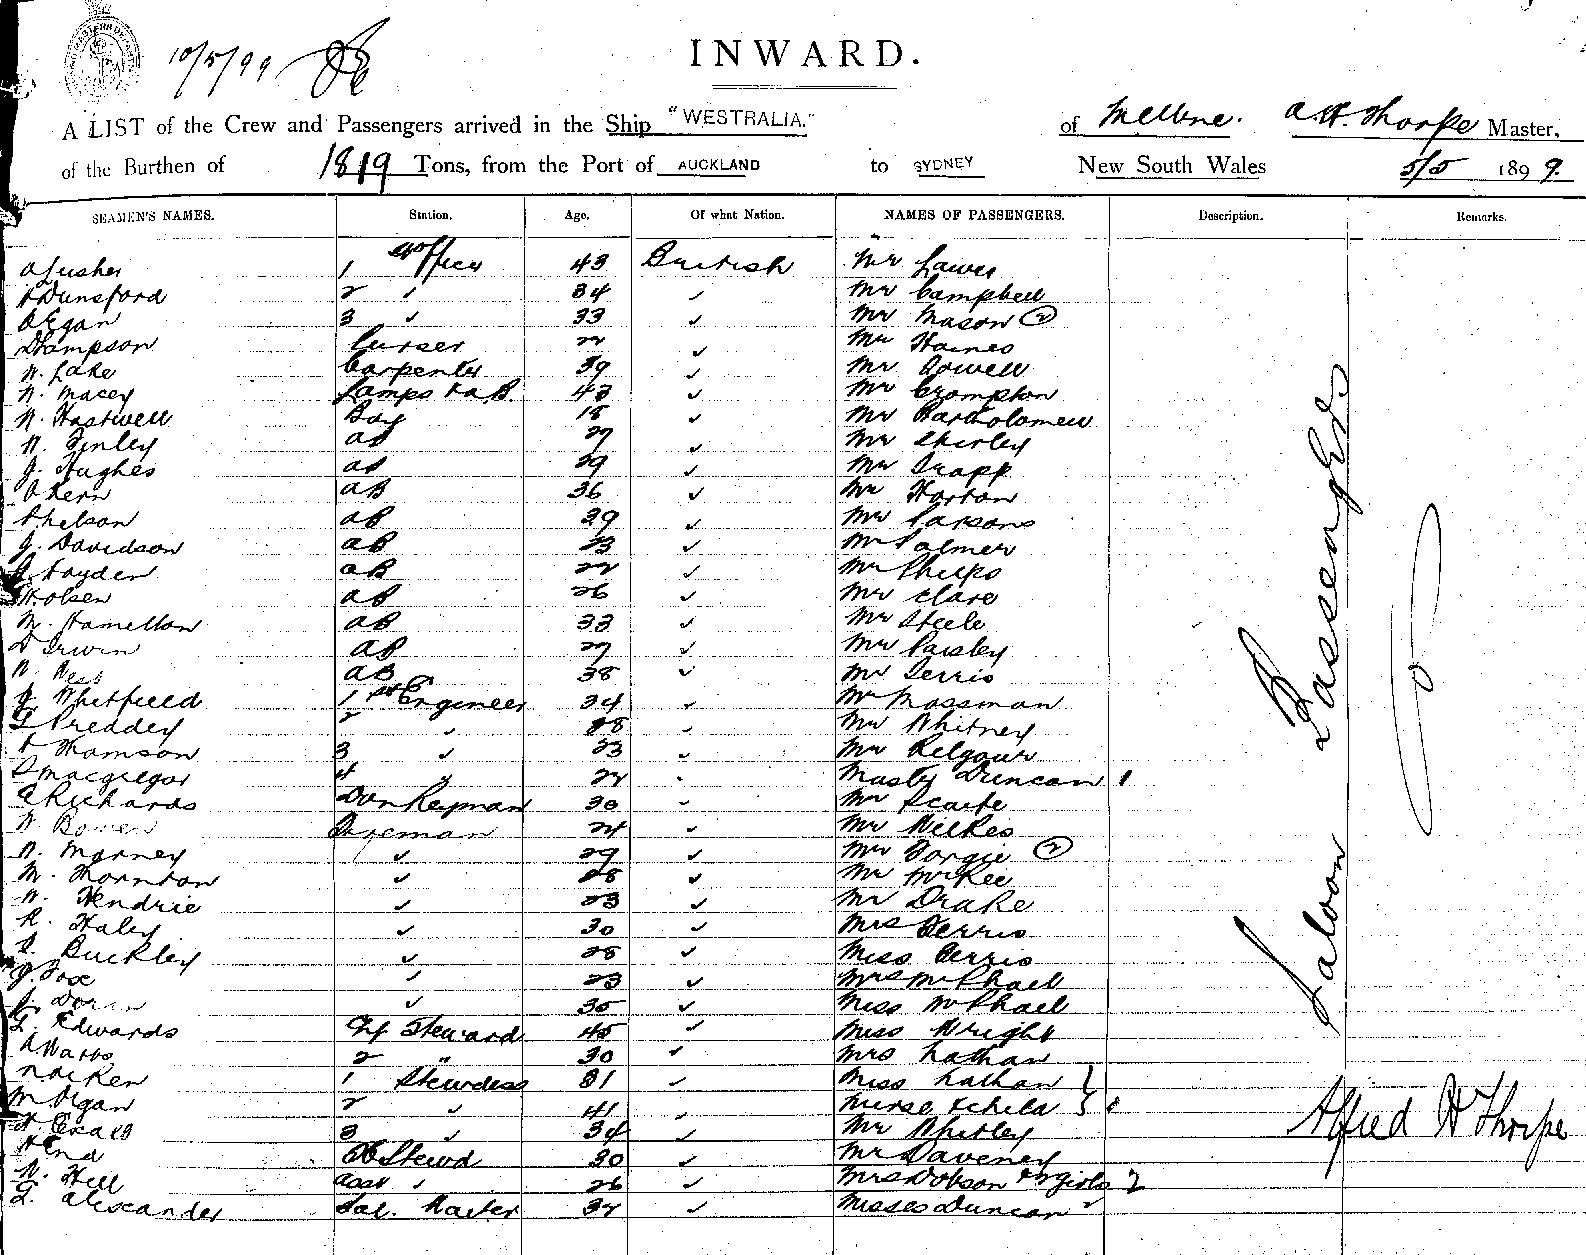 10/5/99
INWARD.
A LIST of the Crew and Passengers arrived in the Ship "WESTRALIA." of Melbne. A.H. Thorpe Master,
of the Burthen of 1819 Tons, from the Port of AUCKLAND to SYDNEY New South Wales 5/5 1899.
SEAMEN'S NAMES. Station. Age. Of what Nation. NAMES OF PASSENGERS. Description. Remarks.
1 Officer 43 British Mr Lawes
Dunsford 2 " 34 ✓ Mr Campbell
Egan 3 ✓ 33 ✓ Mr Mason (2)
Thompson Purser 22 ✓ Mr Haines
W. Lake Carpenter 39 ✓ Mr
N. Macey Lamps & AB 43 ✓ Mr Crompton
N. Hastwell Boy 18 ✓ Mr Bartholomew
W. Finley AB 27 ✓ Mr Shirley
J. Hughes AB 39 ✓ Mr Trapp
Kern AB 36 ✓ Mr Horton
Nelson AB 29 ✓ Mr Parsons
J. Davidson AB 23 ✓ Mr Palmer
Hayden AB 22 ✓ Mr Phelps
Olsen AB 26 ✓ Mr Clare
Hamelton AB 33 ✓ Mr Steele
Irwin AB 27 ✓ Mr Paisley
AB 38 ✓ Mr Ferris
J. Whitfield 1st Engineer 34 ✓ Mr Mossman
Preddey 2 ✓ ✓ Mr Whitney
Thomson 3 ✓ 23 ✓ Mr Kelgour
Macgregor 4 " 22 Mastr Duncan 1
Richards Donkeyman 30 ✓ Mr Scaife
Bowen Fireman 24 ✓ Mr Wilkes
Marney ✓ 29 ✓ Mr Forgie (2)
M. Thornton ✓ 28 ✓ Mr McKee
W. Hendrie ✓ 23 ✓ Mr Drake
R. Haley ✓ 30 ✓ Mrs Ferris
Buckley ✓ 28 ✓ Miss Ferris
Fox ✓ 23 ✓ Mrs McPhael
J. Doran ✓ 35 ✓ Miss McPhael
Edwards Chf Steward 45 ✓ Miss Wright
Watts 2 " 30 ✓ Mrs Nathan
1 Stewdess 31 ✓ Miss Nathan
2 ✓ 41 ✓ Nurse & child
3 ✓ 34 ✓ Mr Whitley
Stewd 30 ✓ Mr Daveney
W. Hill Asst " 26 ✓ Mrs Dobson & 2 girls 2
Alexander Sal. Waiter 32 ✓ Misses Duncan 2
Saloon Passengers
Alfred H Thorpe